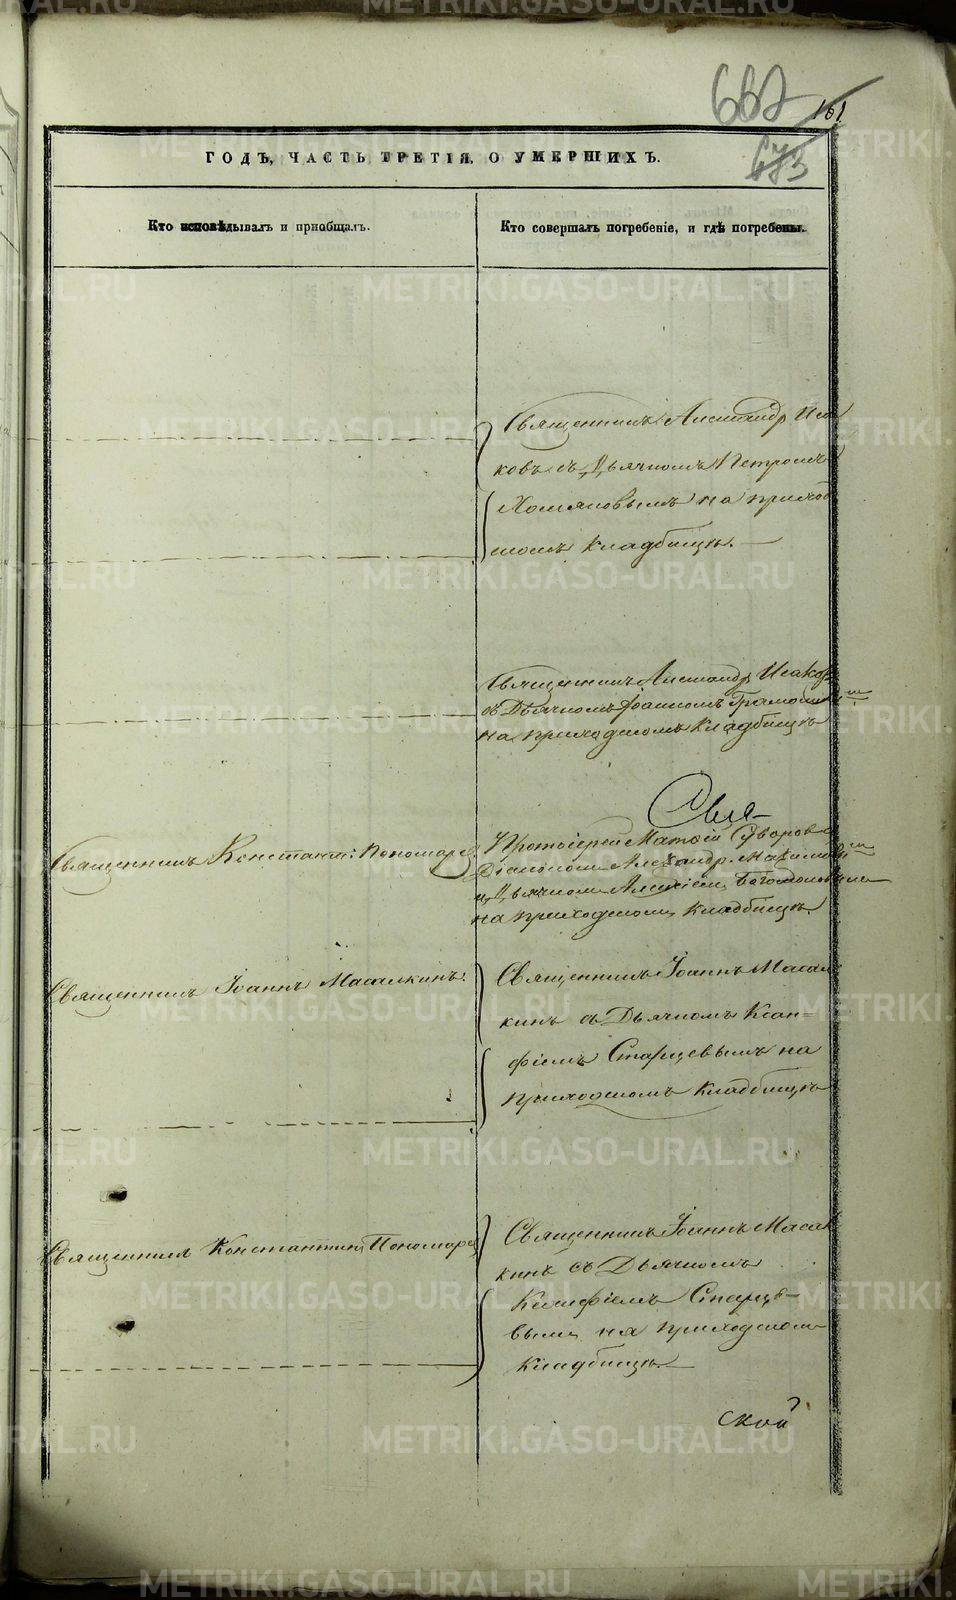 662
161
473
ГОДЪ, ЧАСТЬ ТРЕТІЯ, О УМЕРШИХЪ.
Кто исповѣдывалъ и пріобщалъ.
Кто совершалъ погребеніе, и гдѣ погребены.
Священникъ Александръ Иса
ковъ съ Дьячкомъ Петромъ
Хомяковымъ на приход
скомъ кладбищѣ.
Священникъ Александръ Исаковъ
съ Дьячкомъ Іоанномъ
на приходскомъ кладбищѣ
Священникъ Константинъ Пономаревъ
Протоіерей Матѳій Суворовъ
Діакономъ Александр.
и Дьячкомъ Алексіемъ Богомоловымъ
на приходскомъ кладбищѣ.
Священникъ Іоаннъ Масалкинъ.
Священникъ Іоаннъ Масал
кинъ съ Дьячкомъ Ксан-
фіемъ Старцевымъ на
приходскомъ кладбищѣ
Священникъ Константинъ Пономарев
Священникъ Іоаннъ Масал
кинъ съ Дьячкомъ
Ксанфіемъ Старце-
вымъ на приходскомъ
кладбищѣ.
ской
METRIKI.GASO-URAL.RU